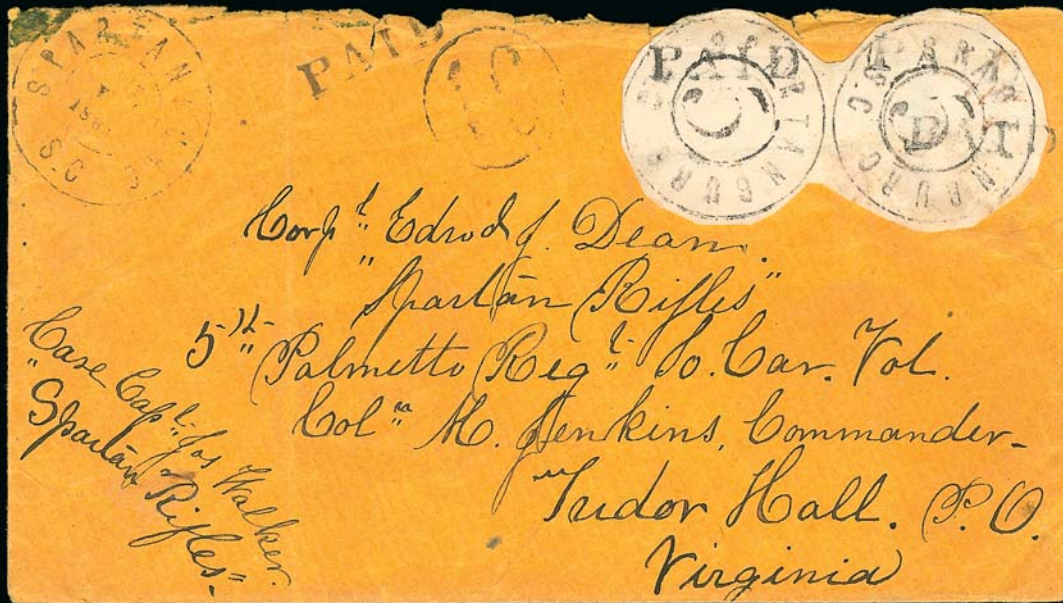 SPARTANBURG S.C.
PAID
10
SPARTANBURG S.C.
PAID
5
SPARTANBURG S.C.
PAID
5
Corpl. Edwd J. Dean.
"Spartan Rifles"
5th Palmetto Regt. So. Car. Vol.
Col. M. Jenkins, Commander-
Tudor Hall. P.O.
Virginia
Care Capt. Jos Walker.
"Spartan Rifles"